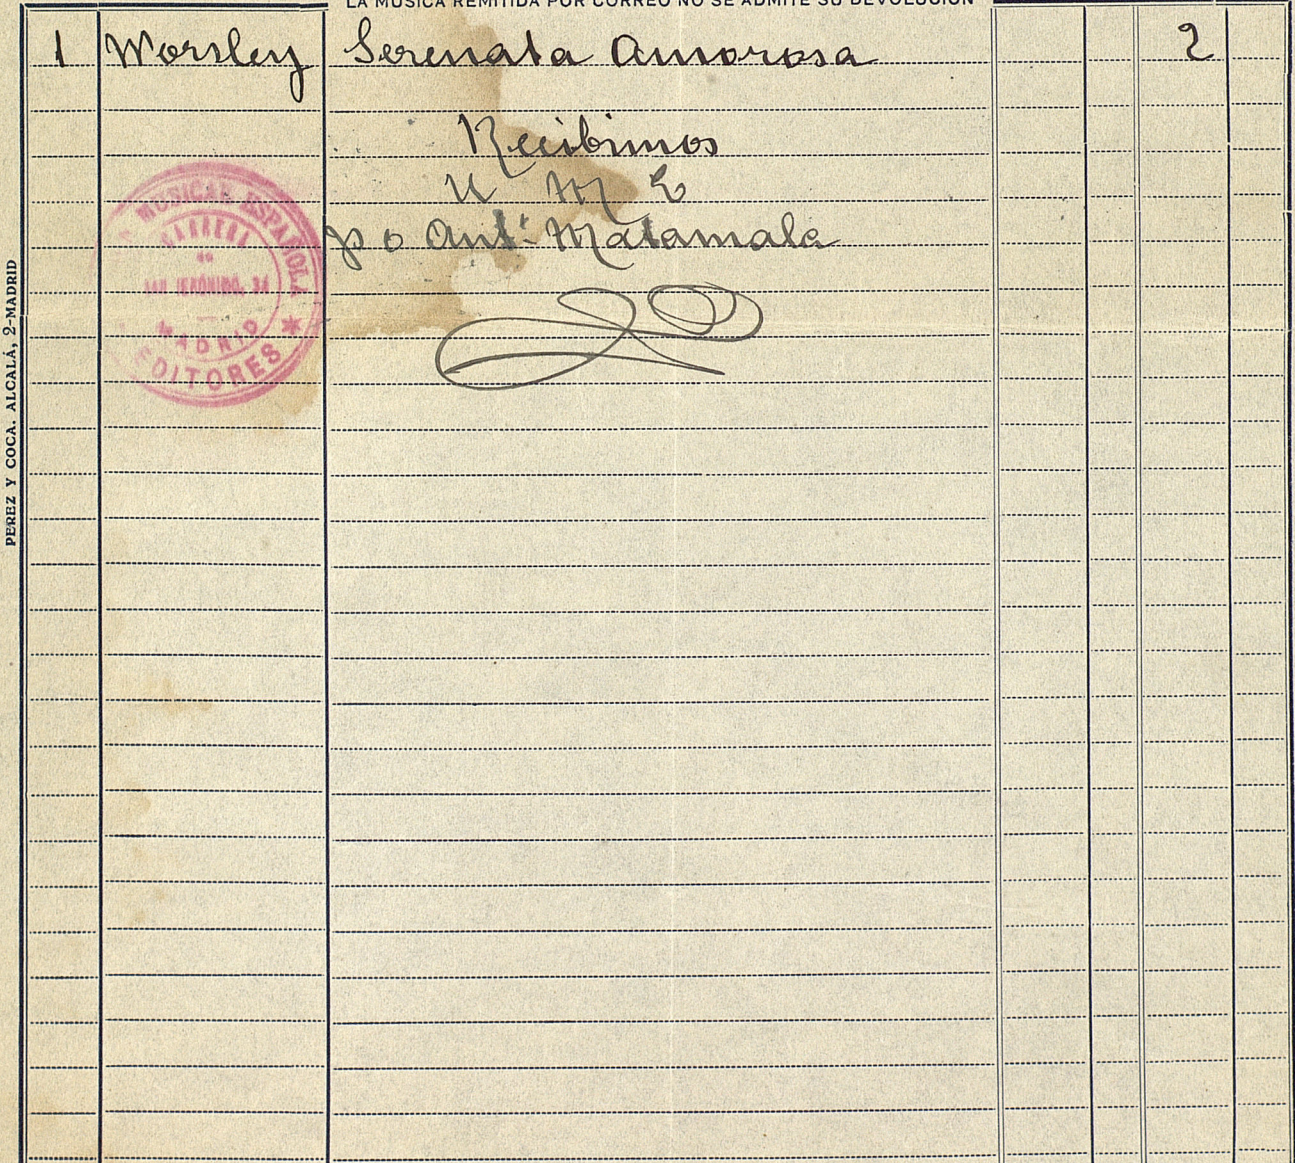 LA MÚSICA REMITIDA POR CORREO NO SE ADMITE SU DEVOLUCIÓN
1 Worsley Serenata Amorosa 2
Recibimos
U M E
po Ant. Matamala
MUSICAL ESPAÑOLA
CARRERA
DE
SAN JERÓNIMO, 34
MADRID
EDITORES
PEREZ Y COCA. ALCALÁ, 2-MADRID